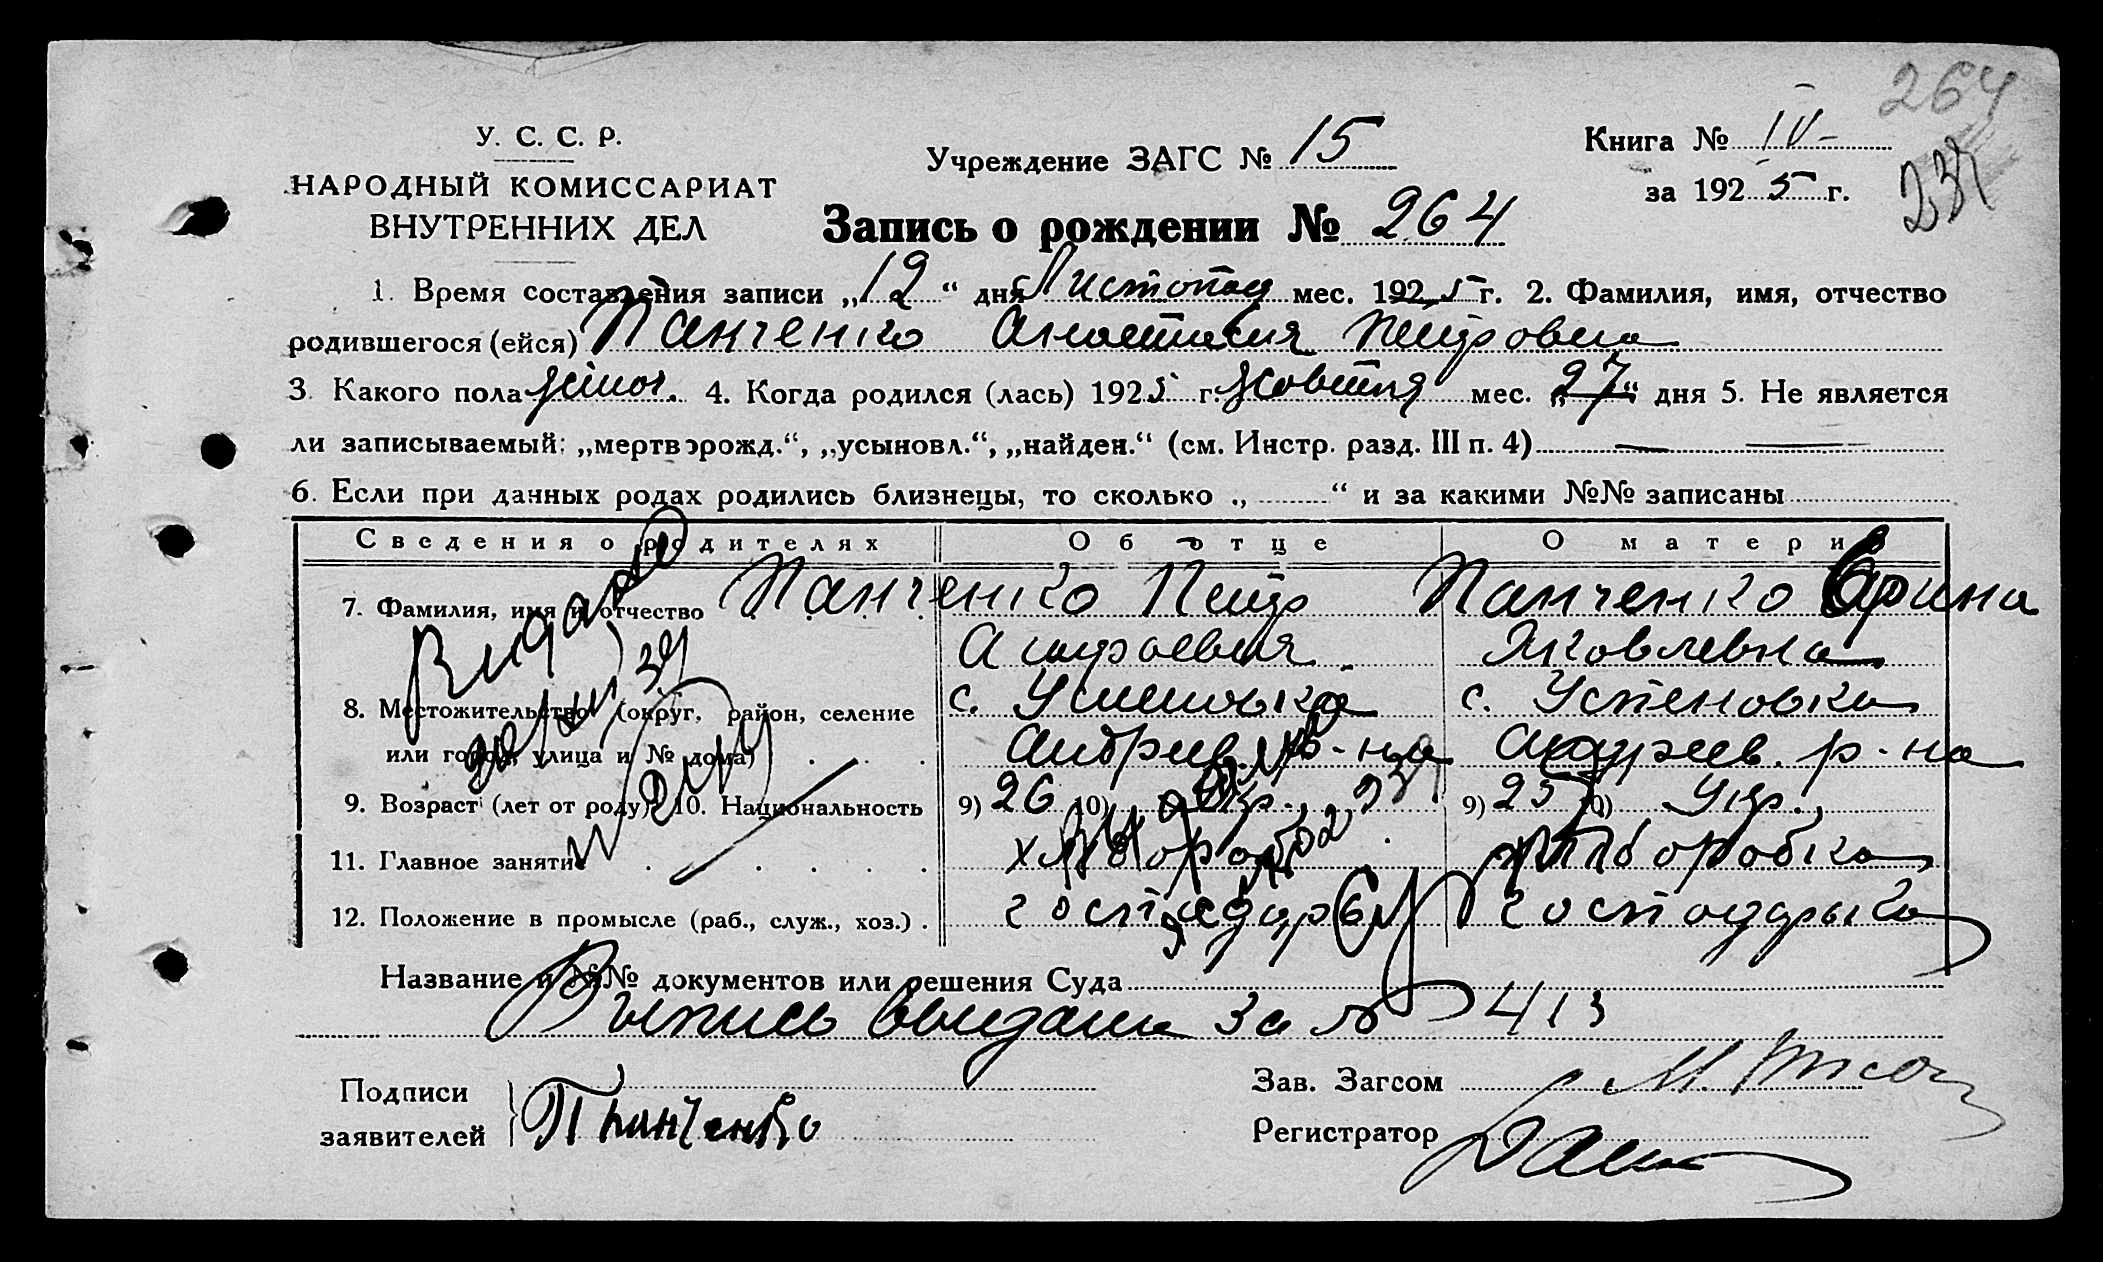 264
237
У. С. С. Р.
НАРОДНЫЙ КОМИССАРИАТ
ВНУТРЕННИХ ДЕЛ
Учреждение ЗАГС № 15
Книга № IV-
за 1925 г.
Запись о рождении № 264
1. Время составления записи „12“ дня Листопад мес. 1925 г. 2. Фамилия, имя, отчество
родившегося (ейся) Панченко Анастасия Петровна
3. Какого пола жіноч. 4. Когда родился (лась) 1925 г. Жовтня мес. „27“ дня 5. Не является
ли записываемый: „мертворожд.“, „усыновл.“, „найден.“ (см. Инстр. разд. III п. 4)
6. Если при данных родах родились близнецы, то сколько „ “ и за какими №№ записаны
Сведения о родителях Об отце О матери
7. Фамилия, имя и отчество Панченко Петр Панченко Єрина
Яковлевна
8. Местожительство (округ, район, селение с. Успеновка с. Успеновка
или город, улица и № дома) Андреев. р-на Андреев. р-на
9. Возраст (лет от роду) 10. Национальность 9) 26 10) Укр. 9) 25 10) Укр.
11. Главное занятие хлібороб хліборобка
12. Положение в промысле (раб., служ., хоз.) господарь господарька
Название и №№ документов или решения Суда
Выпись выдана за № 413
Подписи
заявителей Панченко
Зав. Загсом
Регистратор
Видано